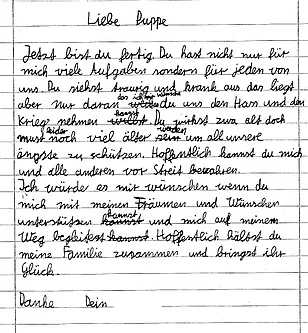 Liebe Puppe
Jetzt bist du fertig. Du hast nicht nur für
mich viele Aufgaben sondern für jeden von
uns. Du siehst traurig und krank aus das liegt
aber nur daran du uns den Hass und den
Krieg nehmen kannst. Du wirkst zwar alt doch
must leider noch viel älter werden um all unsere
ängste zu schützen. Hoffentlich kannst du mich
und alle anderen vor Streit bewahren.
Ich würde es mir wünschen wenn du
mich mit meinen Träumen und Wünschen
unterstützen kannst und mich auf meinem
Weg begleitest. Hoffentlich hältst du
meine Familie zusammen und bringst ihr
Glück.
Danke Dein